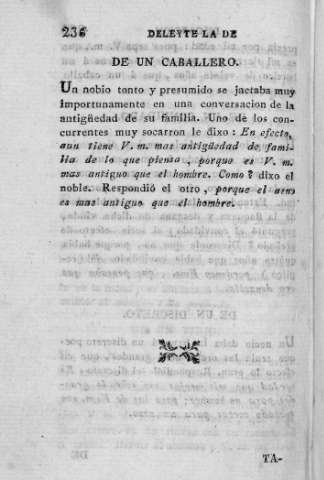 236 DELEYTE LA DE
DE UN CABALLERO.
Un nobio tonto y presumido se jactaba muy
importunamente en una conversacion de la
antigüedad de su familia. Uno de los con-
currentes muy socarron le dixo: En efecto,
aun tiene V. m. mas antigüedad de fami-
lia de lo que piensa, porque es V. m.
mas antiguo que el hombre. Como? dixo el
noble. Respondió el otro, porque el asno
es mas antiguo que el hombre.
TA-